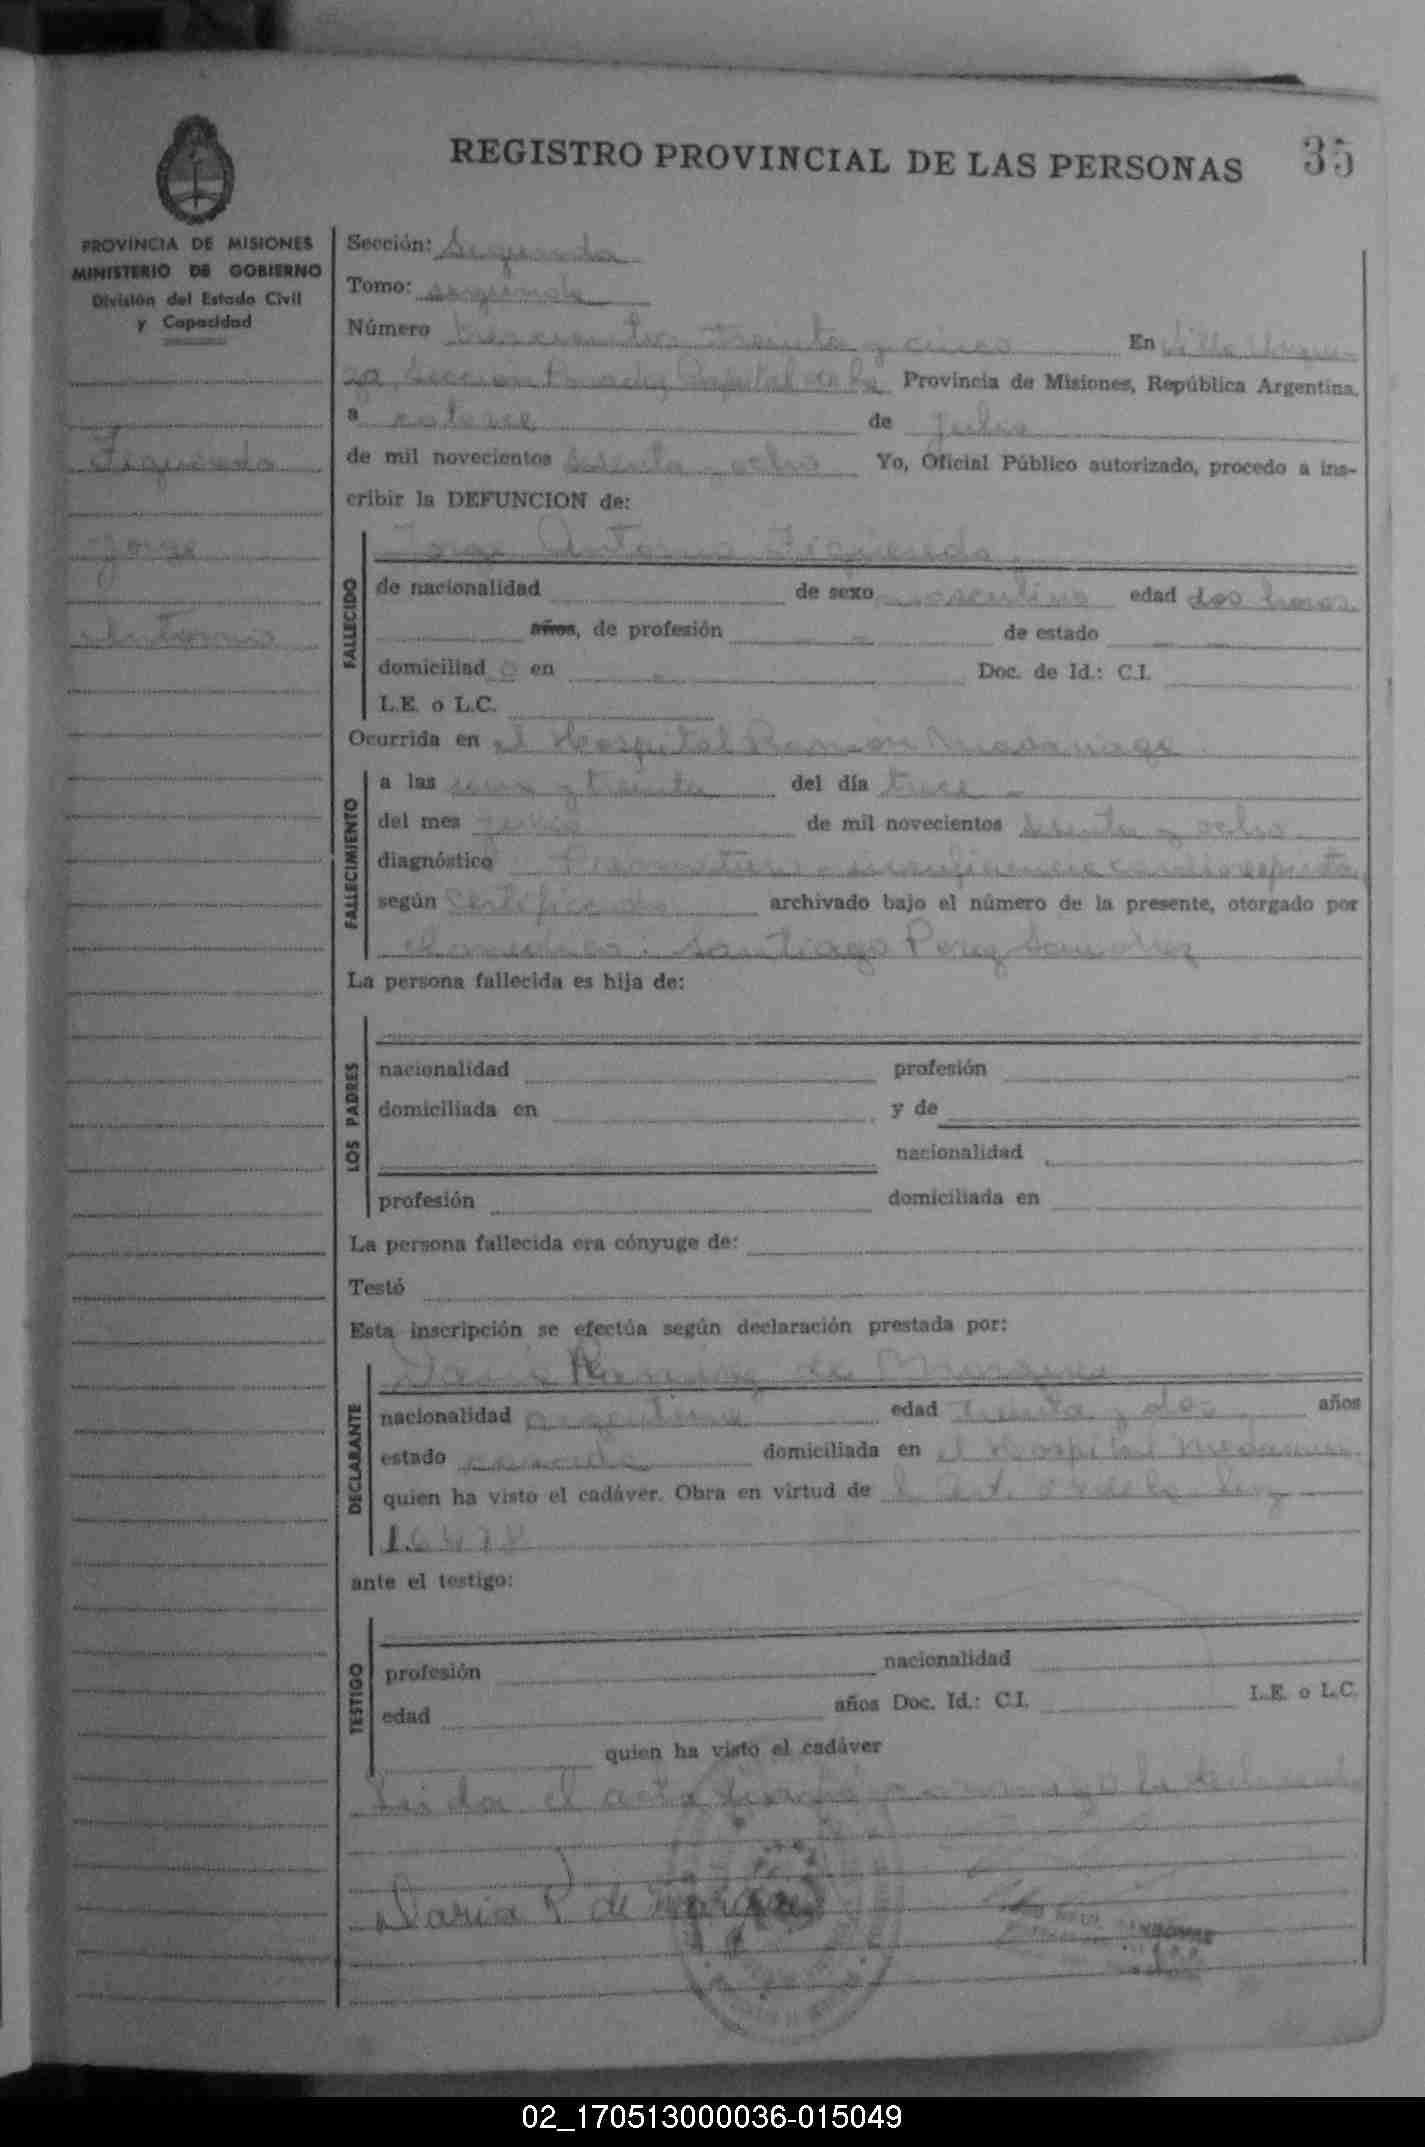 REGISTRO PROVINCIAL DE LAS PERSONAS 35
PROVINCIA DE MISIONES
MINISTERIO DE GOBIERNO
División del Estado Civil
y Capacidad
Figueredo
Jorge
Antonio
Sección: Segunda
Tomo: segundo
Número trescientos treinta y cinco En Villa Urqui-
za, Seccion Posadas Capital de la Provincia de Misiones, República Argentina,
a catorce de julio
de mil novecientos sesenta y ocho Yo, Oficial Público autorizado, procedo a ins-
cribir la DEFUNCION de:
FALLECIDO
Jorge Antonio Figueredo
de nacionalidad de sexo masculino edad dos horas
años, de profesión - de estado -
domiciliado en - Doc. de Id.: C.I.
L.E. o L.C.
Ocurrida en el Hospital Ramon Madariaga
FALLECIMIENTO
a las y treinta del día trece -
del mes de mil novecientos sesenta y ocho
diagnóstico insuficiencia cardiorespirato
según Certificado archivado bajo el número de la presente, otorgado por
Santiago Perez
La persona fallecida es hija de:
LOS PADRES
nacionalidad profesión
domiciliada en y de
nacionalidad
profesión domiciliada en
La persona fallecida era cónyuge de:
Testó
Esta inscripción se efectúa según declaración prestada por:
DECLARANTE
Ramirez de
nacionalidad argentina edad treinta y dos años
estado casada domiciliada en el Hospital
quien ha visto el cadáver. Obra en virtud de l Art. de la Ley
ante el testigo:
TESTIGO
profesión nacionalidad
edad años Doc. Id.: C.I. L.E. o L.C.
quien ha visto el cadáver
Leida el acta la declarante
Maria R de
02_170513000036-015049